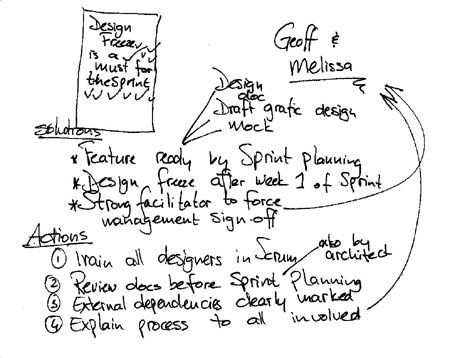 Design
Freeze
is a
must for
the Sprint
Geoff &
Melissa
Design
doc
Draft grafic design
Mock
Solutions
* Feature ready by Sprint planning
* Design freeze after week 1 of Sprint
* Strong facilitator to force
management sign-off
Actions
also by
architect
① Train all designers in Scrum
② Review docs before Sprint Planning
③ External dependencies clearly marked
④ Explain process to all involved